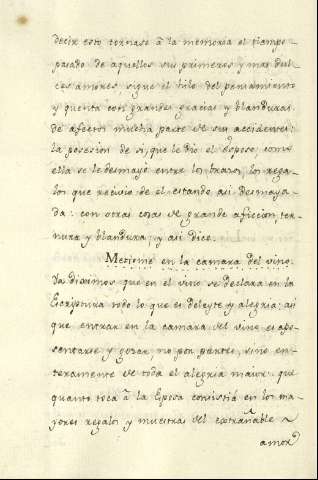 decir esto tornase â la memoria el tiempo
pasado de aquellos sus primeros y mas dul-
ces amores, sigue el hilo del pensamiento
y quenta con grandes gracias y blanduras
de afectos mucha parte de sus accidentes:
la posesion de si, que le dio el Esposo, como
ella se le desmayô entre los brazos, los rega-
los que recivio de el estando asi desmaya-
da: con otras cosas de grande aficion, ter-
nura y blandura; y asi dice.
Metiome en la camara del vino.
Ya diximos que en el vino se declara en la
Escriptura todo lo que es deleyte y alegria; asi
que entrar en la camara del vino es apo-
sentarse y gozar no por partes, sino en-
teramente de toda el alegria maior: que
quanto toca â la Esposa consistiâ en los ma-
yores regalos y muestras del extrañable
amor